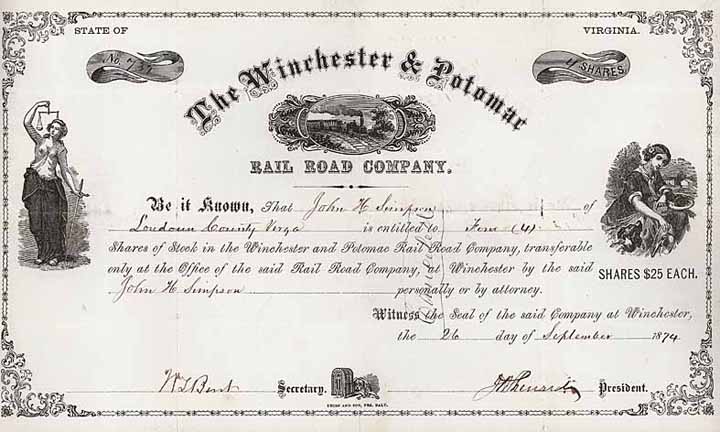 STATE OF
VIRGINIA.
No.
4 SHARES
The Winchester & Potomac
RAIL ROAD COMPANY.
Be it Known, That John H Simpson of
Loudoun County Virga is entitled to Four (4)
Shares of Stock in the Winchester and Potomac Rail Road Company, transferable
only at the Office of the said Rail Road Company, at Winchester by the said
John H Simpson personally or by attorney.
SHARES $25 EACH.
Witness the Seal of the said Company at Winchester,
the 26 day of September 1874
Secretary.
President.